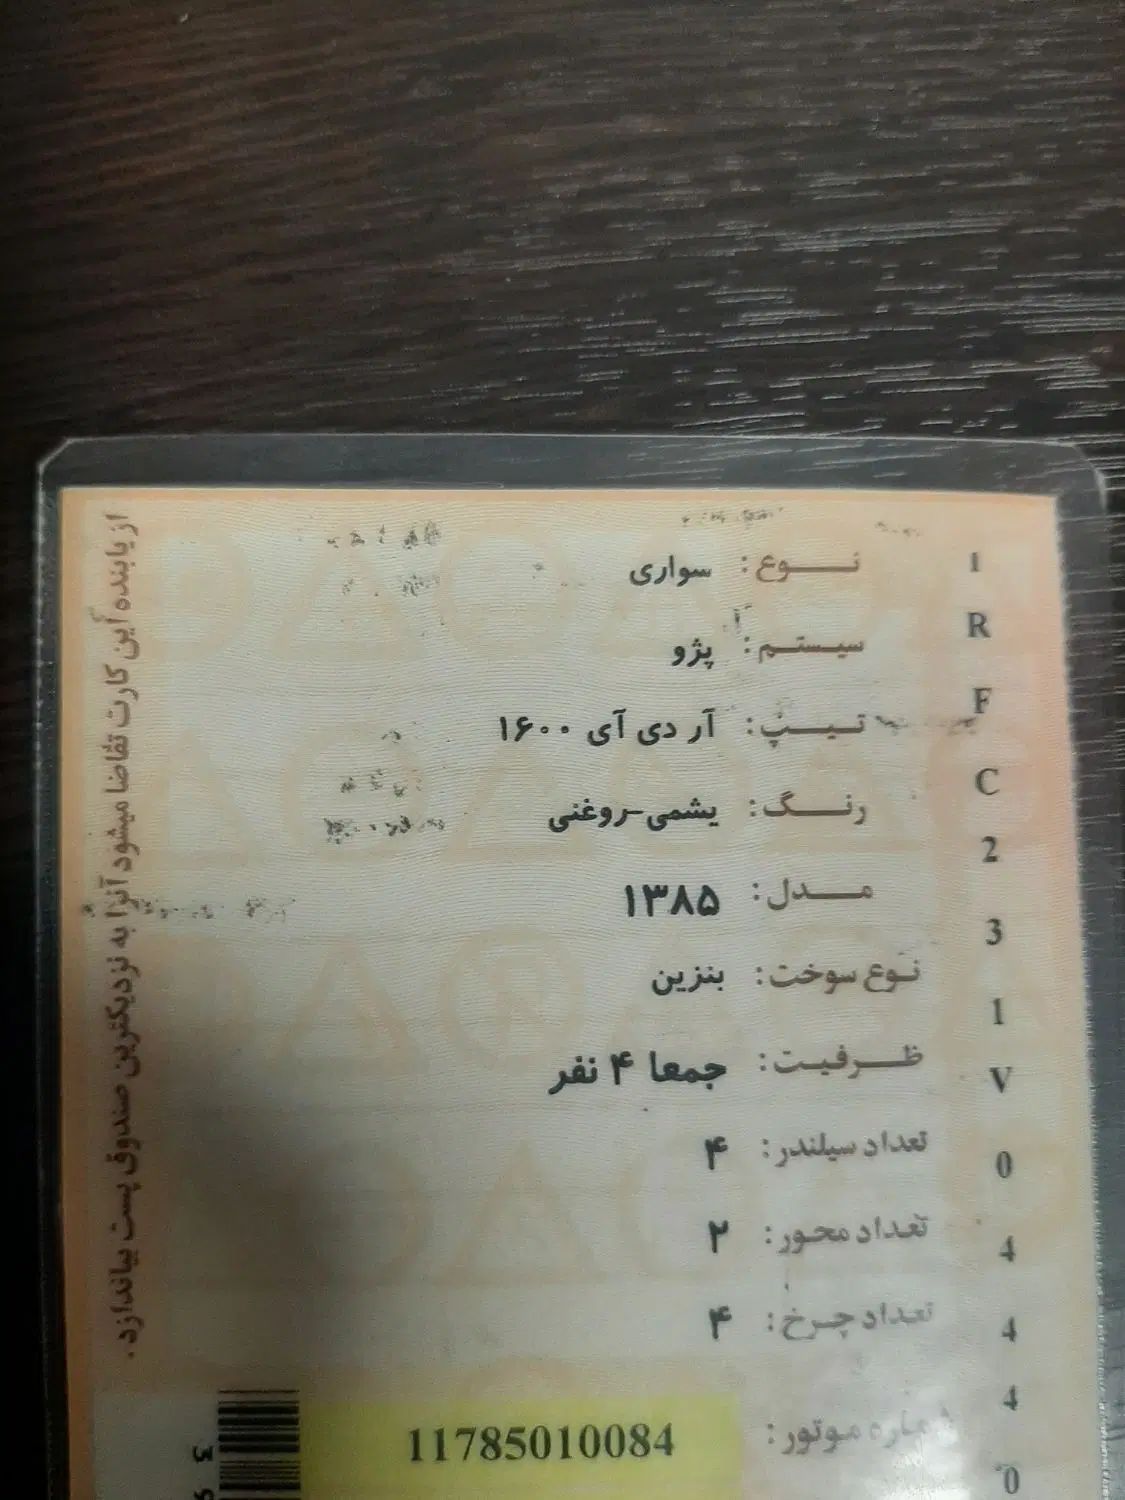 نوع: سواری
سیستم: پژو
تیپ: آر دی آی ۱۶۰۰
رنگ: یشمی-روغنی
مدل: ۱۳۸۵
نوع سوخت: بنزین
ظرفیت: جمعا ۴ نفر
تعداد سیلندر: ۴
تعداد محور: ۲
تعداد چرخ: ۴
شماره موتور: 11785010084
I R F C 2 3 1 V 0 4 4 4 0
از یابنده این کارت تقاضا میشود آنرا به نزدیکترین صندوق پست بیاندازد.
3